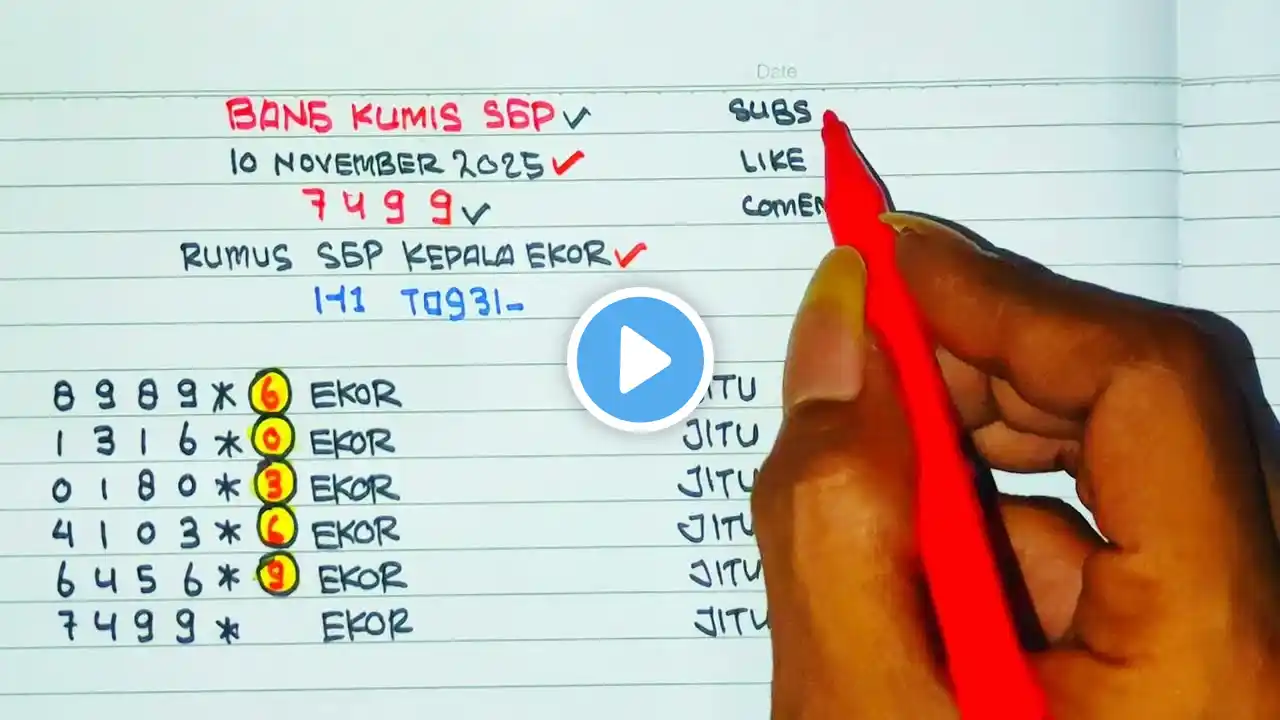 Date
BANG KUMIS SGP
SUBS
10 NOVEMBER 2025
LIKE
7 4 9 9
COMEN
RUMUS SGP KEPALA EKOR
8 9 8 9 * 6 EKOR JITU
1 3 1 6 * 0 EKOR JITU
0 1 8 0 * 3 EKOR JITU
4 1 0 3 * 6 EKOR JITU
6 4 5 6 * 9 EKOR JITU
7 4 9 9 * EKOR JITU